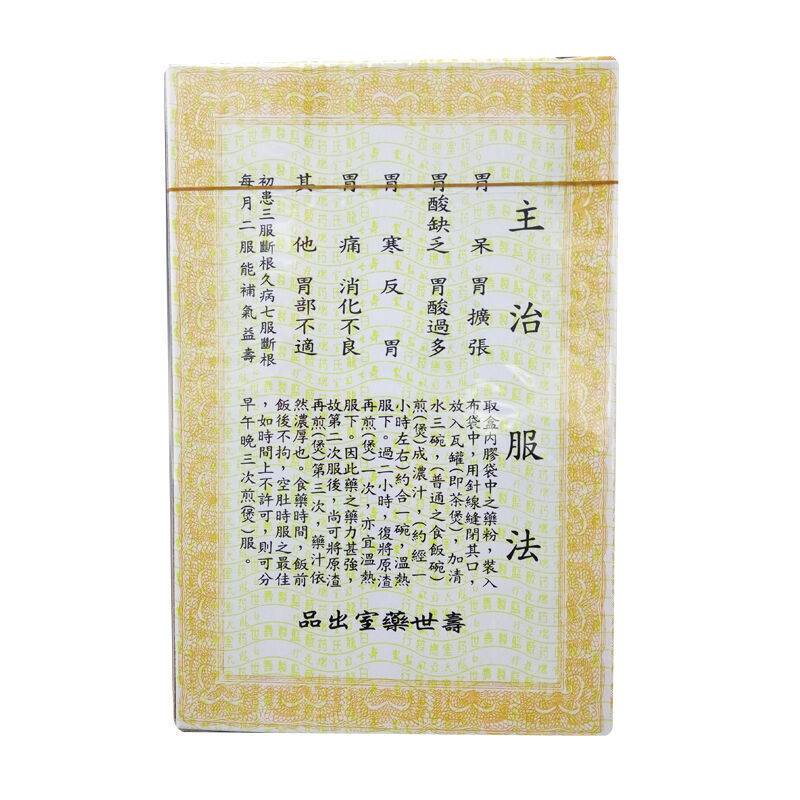 主治服法
胃呆 胃擴張
胃酸缺乏 胃酸過多
胃寒反胃
胃痛 消化不良
其他 胃部不適
初患三服斷根久病七服斷根
每月二服能補氣益壽
取盒內膠袋中之藥粉，裝入
布袋中，用針線縫閉其口，
放入瓦罐(即茶煲)，加清
水三碗，(普通之食飯碗)
煎(煲)成濃汁，(約經一
小時左右)約合一碗，溫熱
服下。過二小時，復將原渣
再煎(煲)一次，亦宜溫熱
服下。因此藥之藥力甚強，
故第二次服後，尚可將原渣
再煎(煲)第三次，藥汁依
然濃厚也。食藥時間，飯前
飯後不拘，空肚時服之最佳
，如時間上不許可，則可分
早午晚三次煎(煲)服。
壽世藥室出品